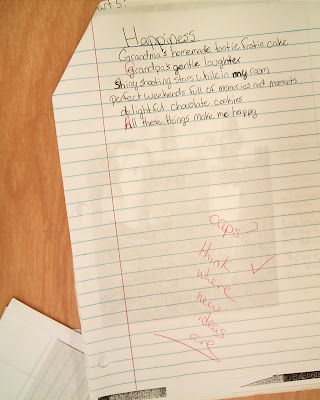 art 5:
Happiness
Grandma's homemade tootie frootie cake
Grandpa's gentle laughter
Shiny shooting stars while in my room
perfect weekends full of memories and moments
delightful chocolate cookies
All these things make me happy
caps?
think
where
new
ideas
are